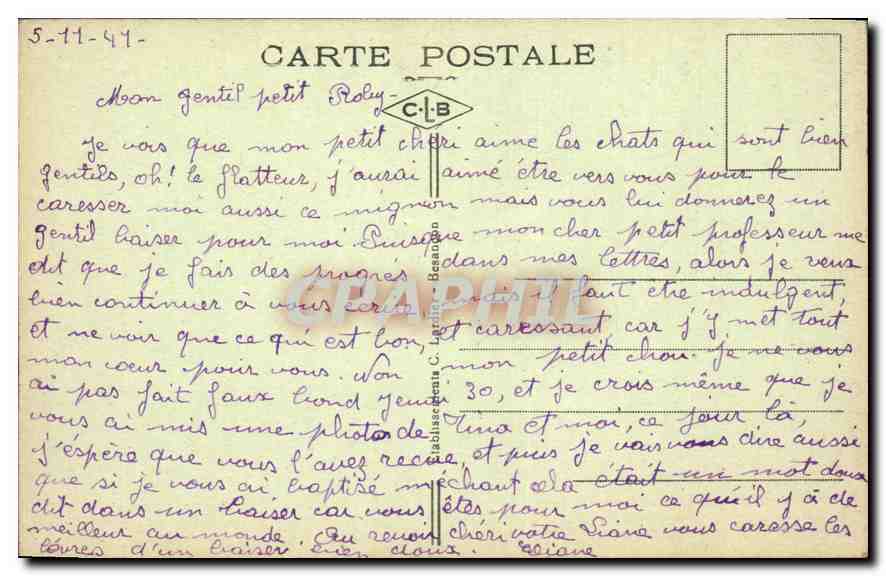 5-11-41-
CARTE POSTALE
Mon gentil petit Roby-
C·L·B
Je vois que mon petit chéri aime les chats qui sont bien
gentils, oh! le flatteur, j'aurai aimé être vers vous pour le
caresser moi aussi ce mignon mais vous lui donnerez un
gentil baiser pour moi Puisque mon cher petit professeur me
dit que je fais des progrés dans mes lettres, alors je veux
bien continuer à vous écrire, mais il faut etre indulgent,
et ne voir que ce qui est bon, et caressant car j'y met tout
mon cœur pour vous. Non mon petit chou. Je ne vous
ai pas fait faux bond Jeudi 30, et je crois même que je
vous ai mis une photos de Tino et moi, ce jour là,
j'éspère que vous l'avez recue, et puis je vais vous dire aussi
que si je vous ai baptisé méchant cela était un mot doux
dit dans un baiser car vous êtes pour moi ce qu'il y à de
meilleur au monde. Au revoir chéri votre Liane vous caresse les
lèvres d'un baiser bien doux. Liane
Etablissements C. Lardier - Besançon
CPAPHIL